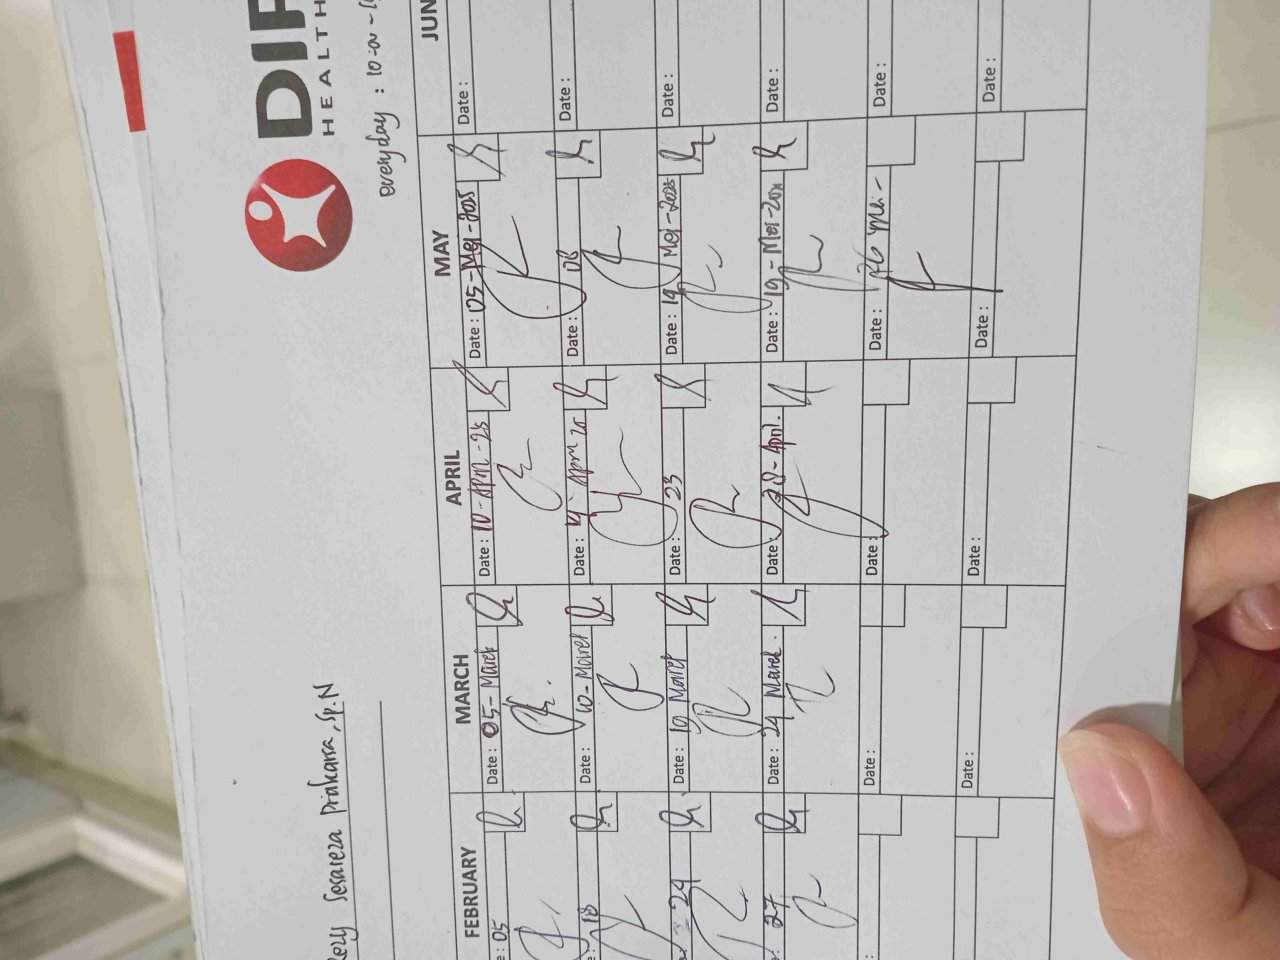 DIP
HEALTH
everyday : 10:00 -
Rezy Sesareza Prakarsa, Sp.N
FEBRUARY MARCH APRIL MAY JUN
05 Date : 05 - Maret Date : 10 - April - 25 Date : 05 - Mei - 2025 Date :
18 Date : 10 - Maret Date : 14 - April 25 Date : 08 Date :
24 Date : 19 Maret Date : 23 Date : 19 Mei - 2025 Date :
27 Date : 24 Maret. Date : 28 - April. Date : 19 - Mei - Date :
Date : Date : Date : 26 Mei - Date :
Date : Date : Date : Date :